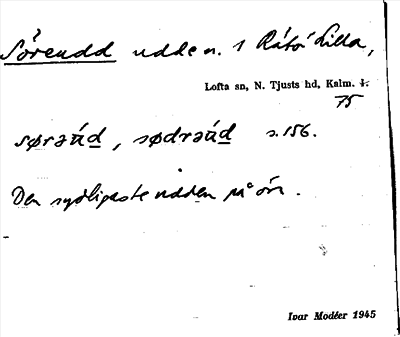 Sörendd udden. i Rätö Lilla,
Lofta sn, N. Tjusts hd, Kalm. l.
75
sørəńd, sødrəńd s. 156.
Den sydligaste udden på ön.
Ivar Modéer 1945